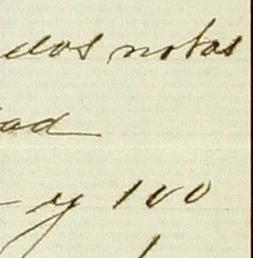 dos notas
ad
y 100